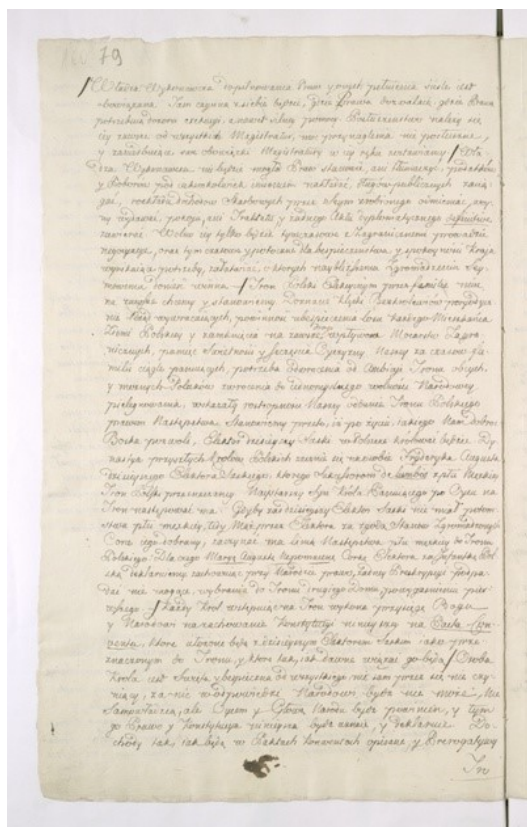 79
Władza Wykonawcza do pilnowania Praw y onych pełnienia ściśle iest
obowiązana. Tam czynną z siebie będzie, gdzie Prawa dozwalaią, gdzie Prawa
potrzebuią dozoru exekucyi, a nawet silney pomocy. Posłuszeństwo należy się
iey zawsze od wszystkich Magistratur, moc przynaglenia nieposłuszne,
y zaniedbuiące swe obowiązki Magistratury w iey ręku zostawiamy. Wła-
dza Wykonawcza nie będzie mogła Praw stanowić, ani tłumaczyć, podatków
y Poborów pod iakimkolwiek imieniem nakładać, długów publicznych zacią-
gać, rozkładu dochodów Skarbowych przez Seym zrobionego odmieniać, woy-
ny wydawać, pokoiu, ani Traktatu y żadnego Aktu dyplomatycznego definitive
zawierać. Wolno iey tylko będzie tymczasowe z Zagranicznemi prowadzić
negocyacye, oraz tymczasowe y potoczne dla bezpieczeństwa y spokoyności Kraiu
wynikaiące potrzeby załatwiać, o których naybliższemu Zgromadzeniu Sey-
mowemu donieść winna. Tron Polski Elekcyinym przez familie mieć
na zawsze chcemy y stanowiemy. Doznane klęski Bezkrólewiów peryodycz-
nie Rząd wywracaiących, powinność ubezpieczenia losu każdego Mieszkańca
Ziemi Polskiey y zamknięcia na zawsze drogi wpływom Mocarstw Zagra-
nicznych, pamięć świetności y szczęścia Oyczyzny Naszey za czasów fa-
milii ciągle panuiących, potrzeba odwrócenia od ambicyi Tronu obcych,
y możnych Polaków zwrócenia do iednomyślnego wolności Narodowey
pielęgnowania, wskazały roztropności Naszey oddanie Tronu Polskiego
prawem Następstwa. Stanowiemy przeto, iż po życiu, iakiego Nam dobroć
Boska pozwoli, Elektor dzisieyszy Saski w Polszcze królować będzie. Dy-
nastya przyszłych Królów Polskich zacznie się na osobie Fryderyka Augusta
dzisieyszego Elektora Saskiego, którego Sukcessorom de lumbis z płci Męskiey
Tron Polski przeznaczamy. Naystarszy Syn Króla Panuiącego po Oycu na
Tron następować ma. Gdyby zaś dzisieyszy Elektor Saski nie miał potom-
stwa płci męskiey, tedy Mąż przez Elektora za zgodą Stanów Zgromadzonych
Corce iego dobrany, zaczynać ma linią Następstwa płci męskiey do Tronu
Polskiego. Dla czego Maryą Augustę Nepomucenę Corkę Elektora za Infantkę Pol-
ską deklaruiemy, zachowuiąc przy Narodzie prawo, żadney Preskrypcyi podpa-
dać nie mogące, wybrania do Tronu drugiego Domu, po wygaśnieniu pier-
wszego. Każdy Król wstępuiąc na Tron wykona przysięgę Bogu
y Narodowi na zachowanie Konstytucyi ninieyszey, na Pacta Con-
venta, które ułożone będą z dzisieyszym Elektorem Saskim iako prze-
znaczonym do Tronu, y które tak, iak dawne wiązać go będą. Osoba
Króla iest święta y bezpieczna od wszystkiego; nic sam przez się nie czy-
niący, za nic w odpowiedzi Narodowi być nie może. Nie
Samowładcą, ale Oycem y Głową Narodu być powinien, y tym
go Prawo y Konstytucya ninieysza być uznaie, y deklaruie. Do-
chody tak, iak będą w Paktach konwentach opisane, y Prerogatywy
Tro